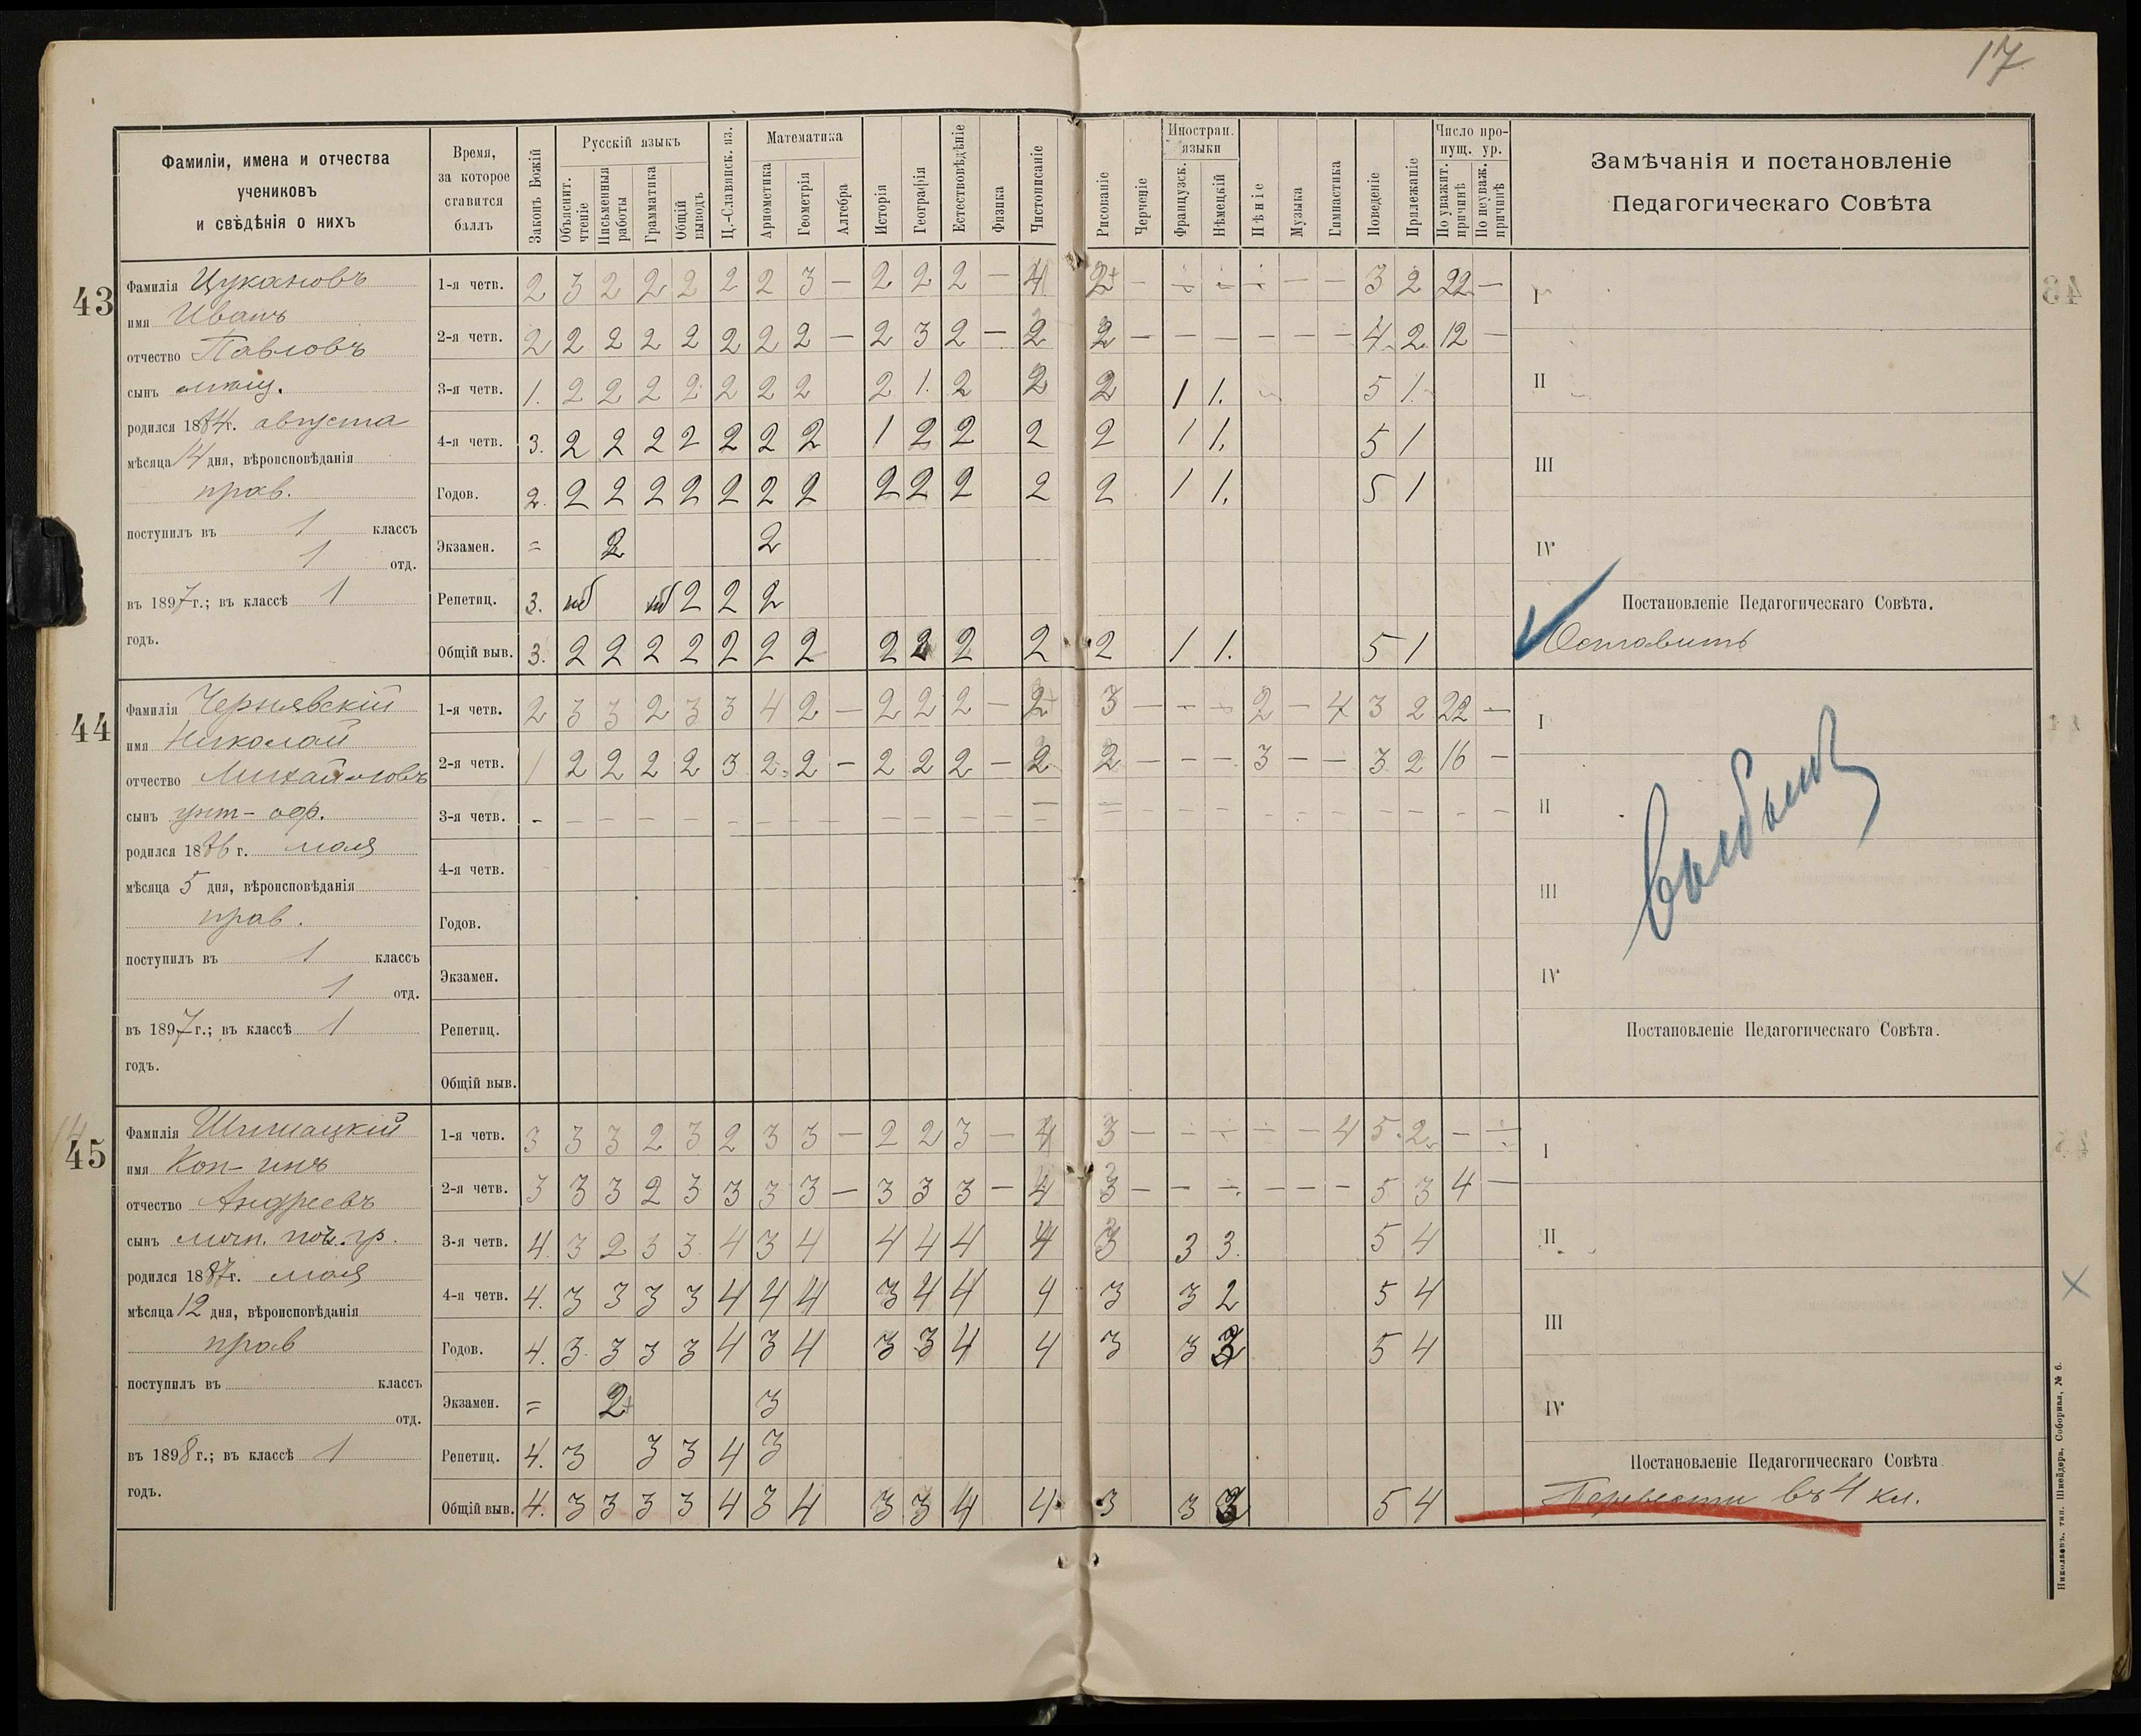 17
Фамиліи, имена и отчества
учениковъ
и свѣдѣнія о нихъ
Время,
за которое
ставится
баллъ
Законъ Божій
Русскій языкъ
Объяснит. чтеніе
Письменныя работы
Грамматика
Общій выводъ
Ц.-Славянск. яз.
Математика
Арифметика
Геометрія
Алгебра
Исторія
Географія
Естествовѣдѣніе
Физика
Чистописаніе
Рисованіе
Черченіе
Иностран. языки
Французск.
Нѣмецкій
Пѣніе
Музыка
Гимнастика
Поведеніе
Прилежаніе
Число пропущ. ур.
По уважит. причинѣ
По неуваж. причинѣ
Замѣчанія и постановленіе
Педагогическаго Совѣта
43
Фамилія Цукановъ
имя Иванъ
отчество Павловъ
сынъ мѣщ.
родился 1884 г. августа
мѣсяца 14 дня, вѣроисповѣданія
прав.
поступилъ въ 1 классъ
1 отд.
въ 1897 г.; въ классѣ 1
годъ.
1-я четв. 2 3 2 2 2 2 2 3 — 2 2 2 — 4 2 — — — — — — 3 2 22 —
2-я четв. 2 2 2 2 2 2 2 2 — 2 3 2 — 2 2 — — — — — — 4 2 12 —
3-я четв. 1. 2 2 2 2 2 2 2 2 1. 2 2 2 1 1. 5 1.
4-я четв. 3. 2 2 2 2 2 2 2 1 2 2 2 2 1 1. 5 1
Годов. 2. 2 2 2 2 2 2 2 2 2 2 2 2 1 1. 5 1
Экзамен. = 2 2
Репетиц. 3. нб нб 2 2 2
Общій выв. 3. 2 2 2 2 2 2 2 2 2 2 2 2 1 1. 5 1
I
II
III
IV
Постановленіе Педагогическаго Совѣта.
Оставить
44
Фамилія Чернявскій
имя Николай
отчество Михайловъ
сынъ унт-оф.
родился 1886 г. мая
мѣсяца 5 дня, вѣроисповѣданія
прав.
поступилъ въ 1 классъ
1 отд.
въ 1897 г.; въ классѣ 1
годъ.
1-я четв. 2 3 3 2 3 3 4 2 — 2 2 2 — 2 3 — — — 2 — 4 3 2 22 —
2-я четв. 1 2 2 2 2 3 2 2 — 2 2 2 — 2 2 — — — 3 — — 3 2 16 —
3-я четв. — — — — — — — — — — — — — — — — — — — — — — — —
4-я четв.
Годов.
Экзамен.
Репетиц.
Общій выв.
I
II
III
IV
Выбылъ
Постановленіе Педагогическаго Совѣта.
45
Фамилія Шишацкій
имя Кон-инъ
отчество Андреевъ
сынъ поч. гр.
родился 1887 г. мая
мѣсяца 12 дня, вѣроисповѣданія
прав
поступилъ въ классъ
отд.
въ 1898 г.; въ классѣ 1
годъ.
1-я четв. 3 3 3 2 3 2 3 3 — 2 2 3 — 4 3 — — — — — 4 5 2 — —
2-я четв. 3 3 3 2 3 3 3 3 — 3 3 3 — 4 3 — — — — — — 5 3 4 —
3-я четв. 4. 3 2 3 3 4 3 4 4 4 4 4 3 3 3. 5 4
4-я четв. 4. 3 3 3 3 4 4 4 3 4 4 4 3 3 2 5 4
Годов. 4. 3 3 3 3 4 3 4 3 3 4 4 3 3 3 5 4
Экзамен. = 2 3
Репетиц. 4. 3 3 3 4 3
Общій выв. 4. 3 3 3 3 4 3 4 3 3 4 4 3 3 3 5 4
I
II
III
IV
Постановленіе Педагогическаго Совѣта.
Перевести въ 4 кл.
Николаевъ. тип. Шнейдера, Соборная, № 6.